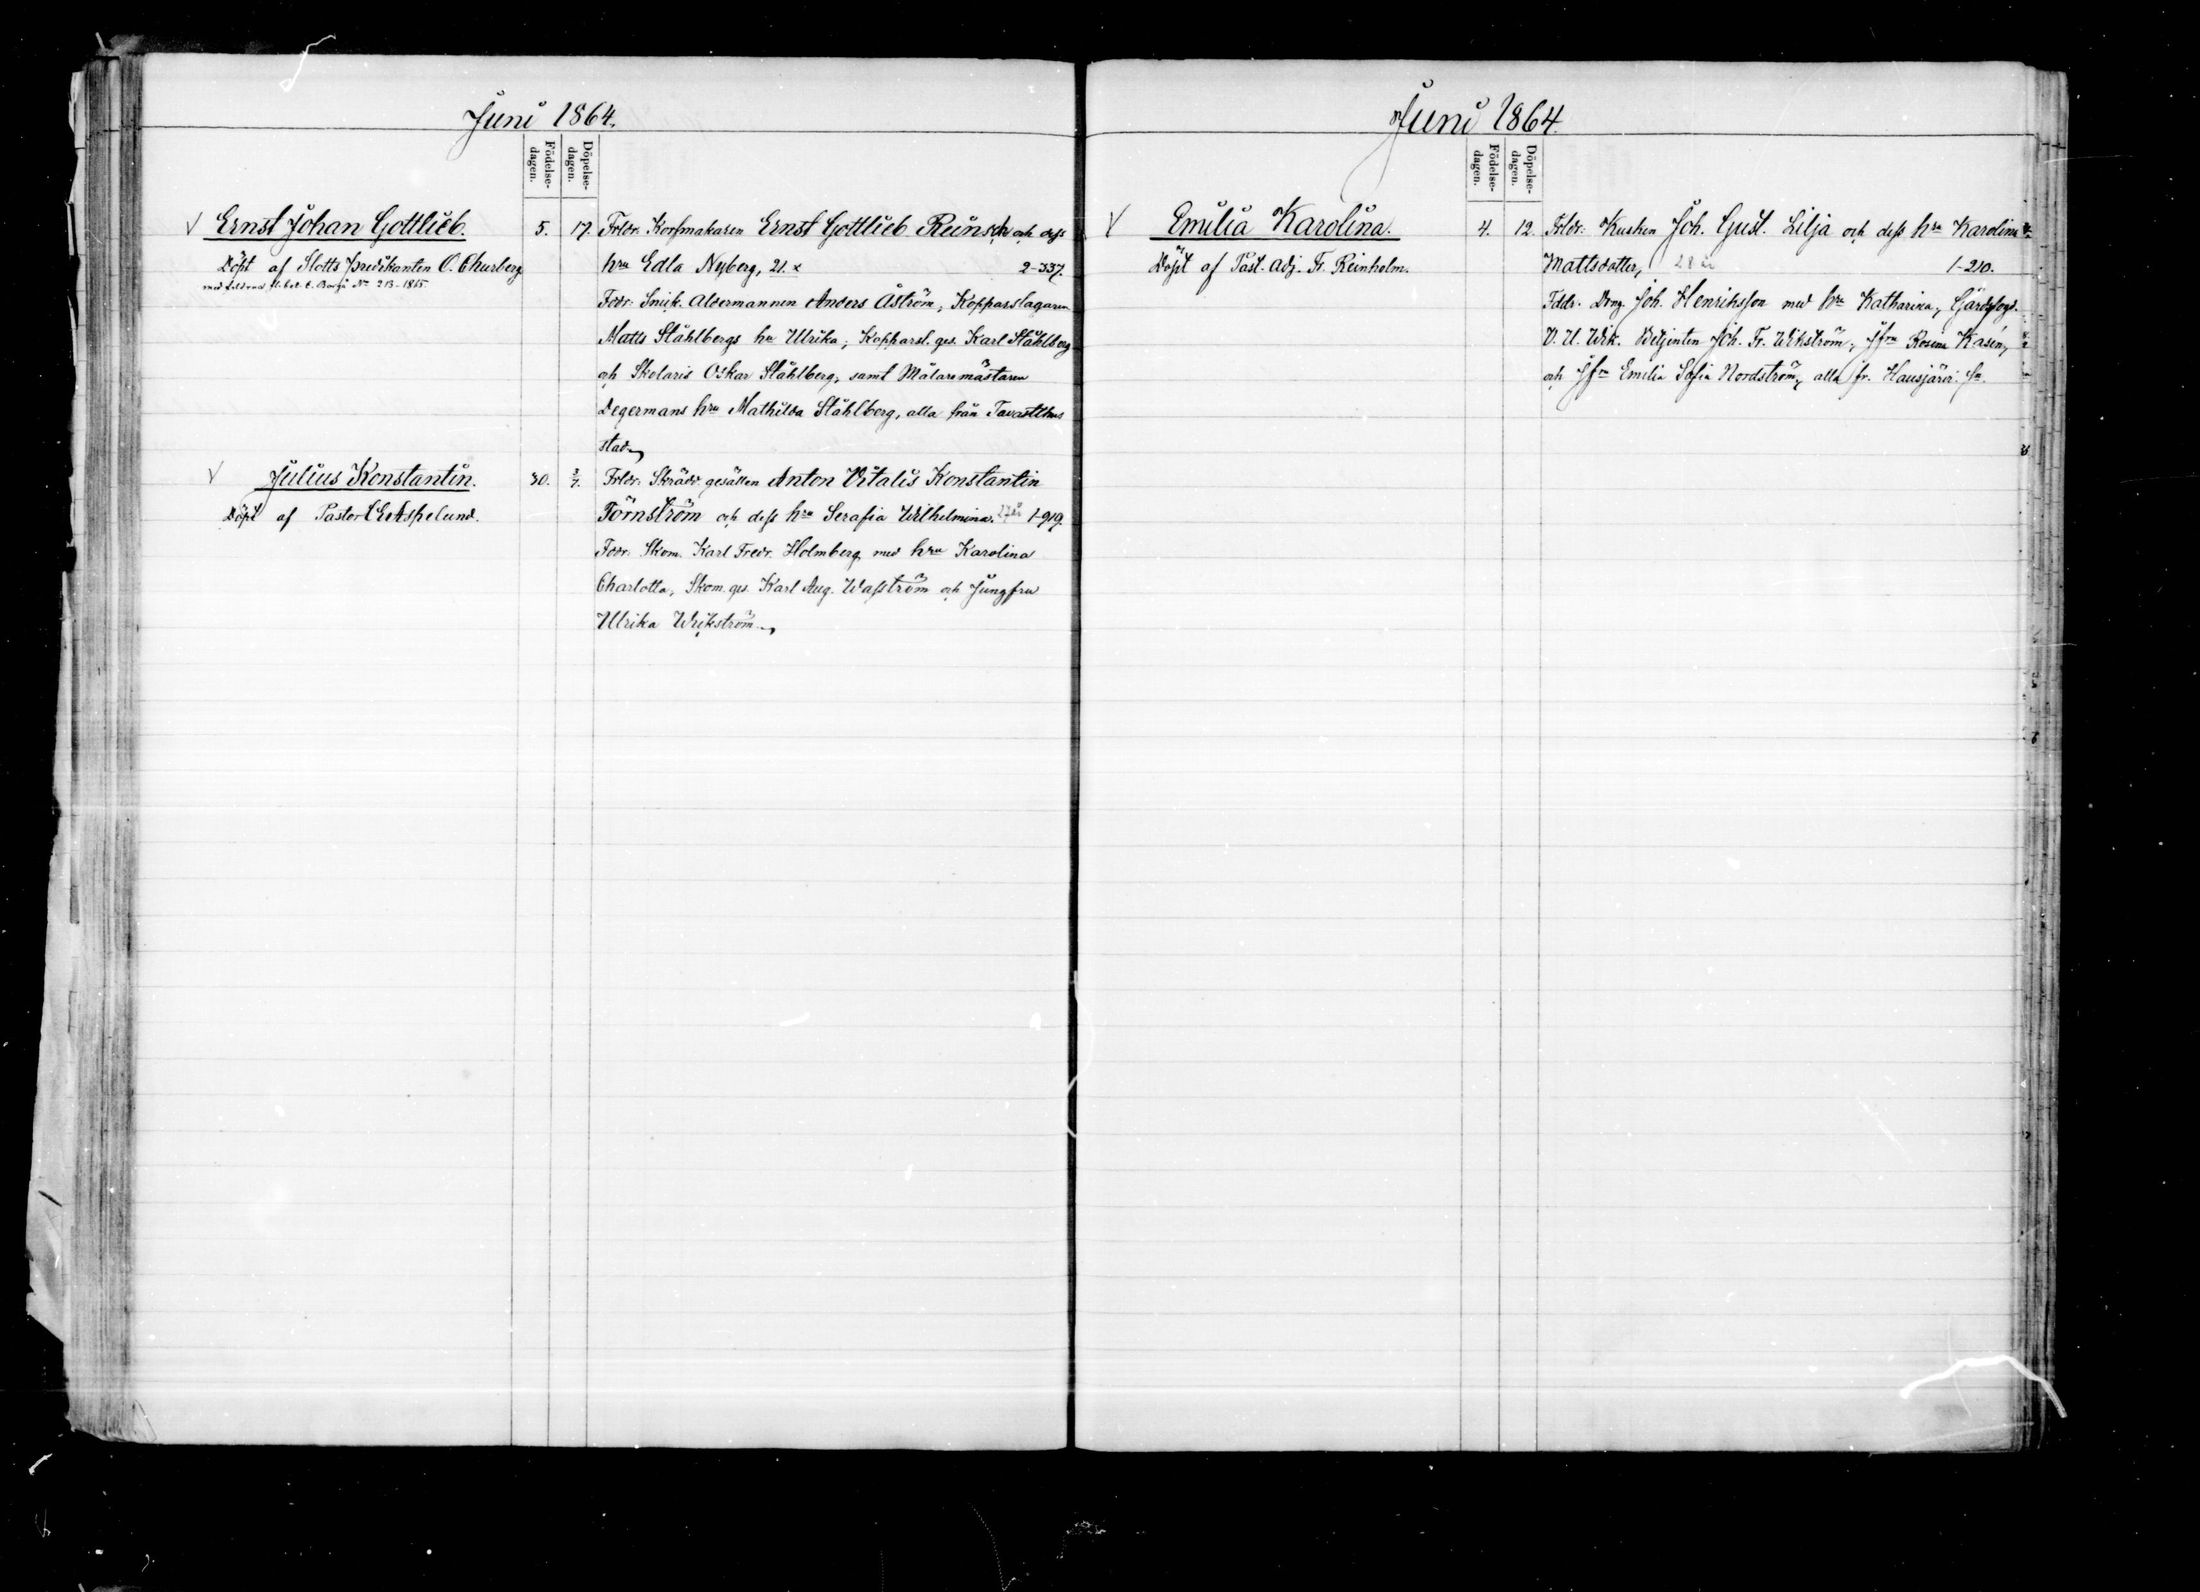 Juni 1864.
Födelse-
dagen.
Döpelse-
dagen.
Ernst Johan Gottlieb.
5.
17.
Frldr. Korfmakaren Ernst Gottlieb Reinsch och dess
Döpt af Slotts predikanten C. Churberg
hru Edla Nyberg, 21. x
2-337.
Borgå No 213-1865
Fddr. Snick. Aldermannen Anders Åström, Kopparslagaren
Matts Ståhlbergs hu Ulrika, Kopparsl. ges. Karl Ståhlberg
och Skolaris Oskar Ståhlberg, samt Målaremästaren
Degermans hru Mathilda Ståhlberg, alla från Tavastehus
stad.
Julius Konstantin.
30.
3/7.
Frldr. Skrädd. gesällen Anton Vitalis Konstantin
Döpt af Pastor Aspelund.
Törnström och dess hru Serafia Wilhelmina. 27 år 1-919.
Fddr. Skom. Karl Fredr. Holmberg med hru Karolina
Charlotta, Skom. ges. Karl Aug. Wasström och Jungfru
Ulrika Wickström.
Juni 1864.
Födelse-
dagen.
Döpelse-
dagen.
Emilia Karolina.
4.
12.
Frldr: Kusken Joh. Gust. Lilja och dess hru Karolina
Döpt af Past. Adj. Fr. Reinholm.
Mattsdotter, 28 år
1-210.
Fddr. Dräng Joh. Henriksson med hru Katharina,
Joh. Fr. Wikström, Jfru Rosina Kasén,
och Jfru Emilia Sofia Nordström, alla fr. Hausjärvi sn.